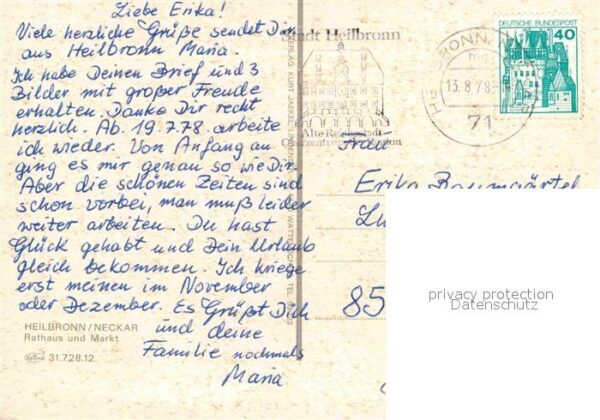 Liebe Erika!
Viele herzliche Grüße sendet Dir
aus Heilbronn Maria.
Ich habe Deinen Brief und 3
Bilder mit großer Freude
erhalten. Danke Dir recht
herzlich. Ab. 19.7.78. arbeite
ich wieder. Von Anfang an
ging es mir genau so wie Dir
Aber die schönen Zeiten sind
schon vorbei, man muß leider
weiter arbeiten. Du hast
Glück gehabt und Dein Urlaub
gleich bekommen. Ich kriege
erst meinen im November
oder Dezember. Es Grüßt Dich
und deine
Familie nochmals
Maria
HEILBRONN/NECKAR
Rathaus und Markt
31.728.12
VERLAG KURT JAEGEL
Stadt Heilbronn
Alte Reichsstadt
13.8.78
71
DEUTSCHE BUNDESPOST
40
Frau
Erika Baumgärtel
85
privacy protection
Datenschutz